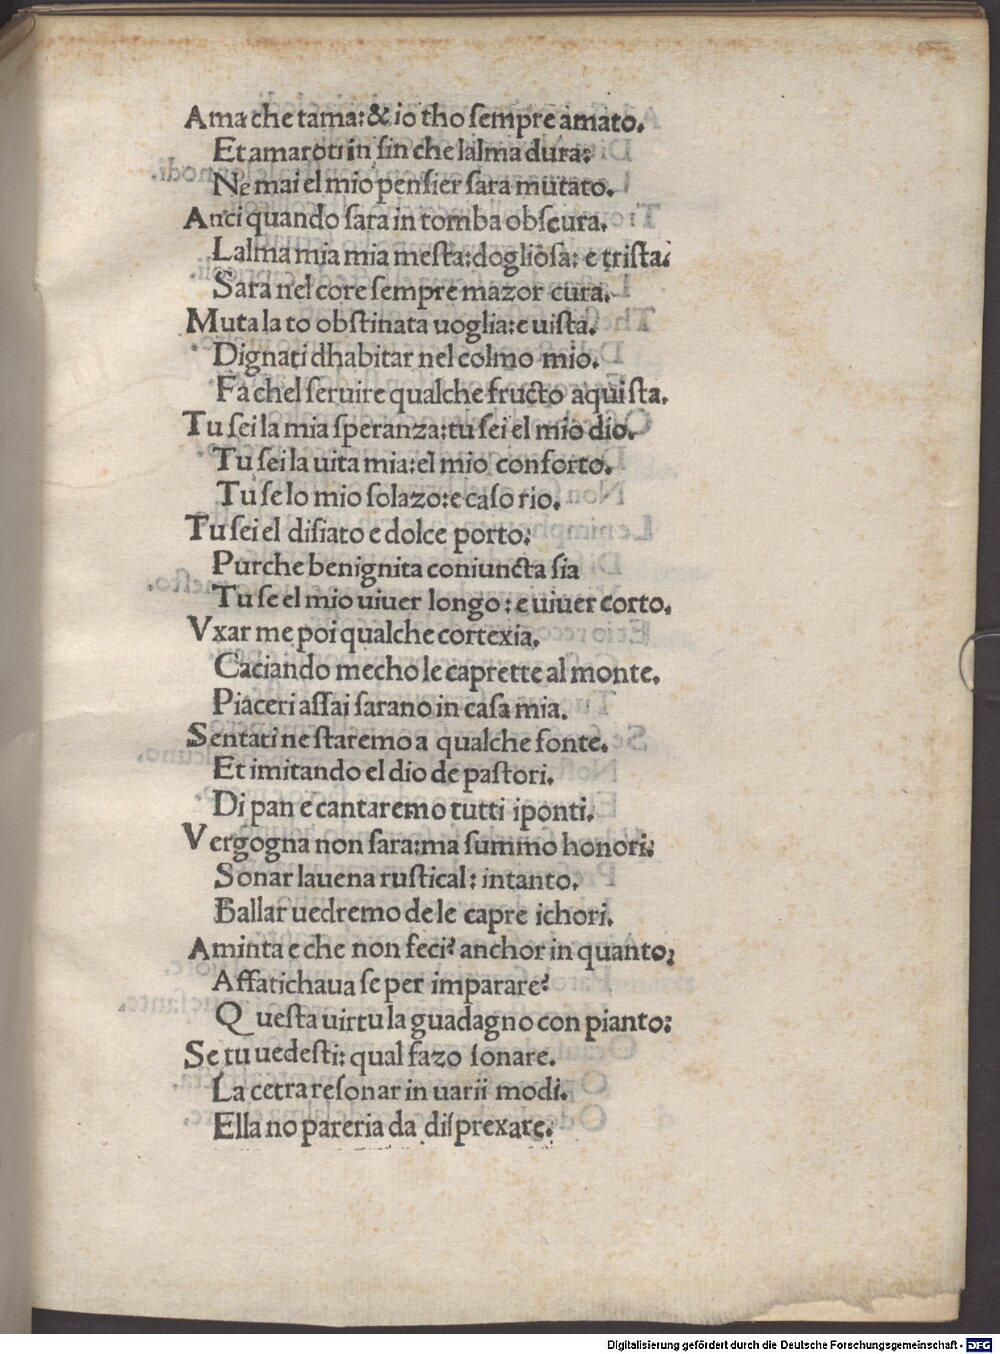 Ama che tama: & io tho ſempre amato.
Et amaroti in ſin che lalma dura:
Ne mai el mio penſier ſara mutato.
Anci quando ſara in tomba obſcura.
Lalma mia mia meſta: doglioſa: e triſta:
Sara nel core ſempre mazor cura.
Muta la to obſtinata uoglia: e uiſta.
Dignati dhabitar nel colmo mio.
Fa chel ſeruire qualche fructo aquiſta.
Tu ſei la mia ſperanza: tu ſei el mio dio.
Tu ſei la uita mia: el mio conforto.
Tu ſe lo mio ſolazo: e caſo rio.
Tu ſei el diſiato e dolce porto:
Purche benignita coniuncta ſia
Tu ſe el mio uiuer longo: e uiuer corto.
Vxar me poi qualche cortexia.
Caciando mecho le caprette al monte.
Piaceri aſſai ſarano in caſa mia.
Sentati ne ſtaremo a qualche fonte.
Et imitando el dio de paſtori.
Di pan e cantaremo tutti iponti.
Vergogna non ſara: ma ſummo honori:
Sonar lauena ruſtical: intanto.
Ballar uedremo de le capre ichori.
Aminta e che non feci? anchor in quanto;
Affatichaua ſe per imparare?
Queſta uirtu la guadagno con pianto:
Se tu uedeſti: qual fazo ſonare.
La cetra reſonar in uarii modi.
Ella no pareria da diſprexare.
Digitalisierung gefördert durch die Deutsche Forschungsgemeinschaft - DFG